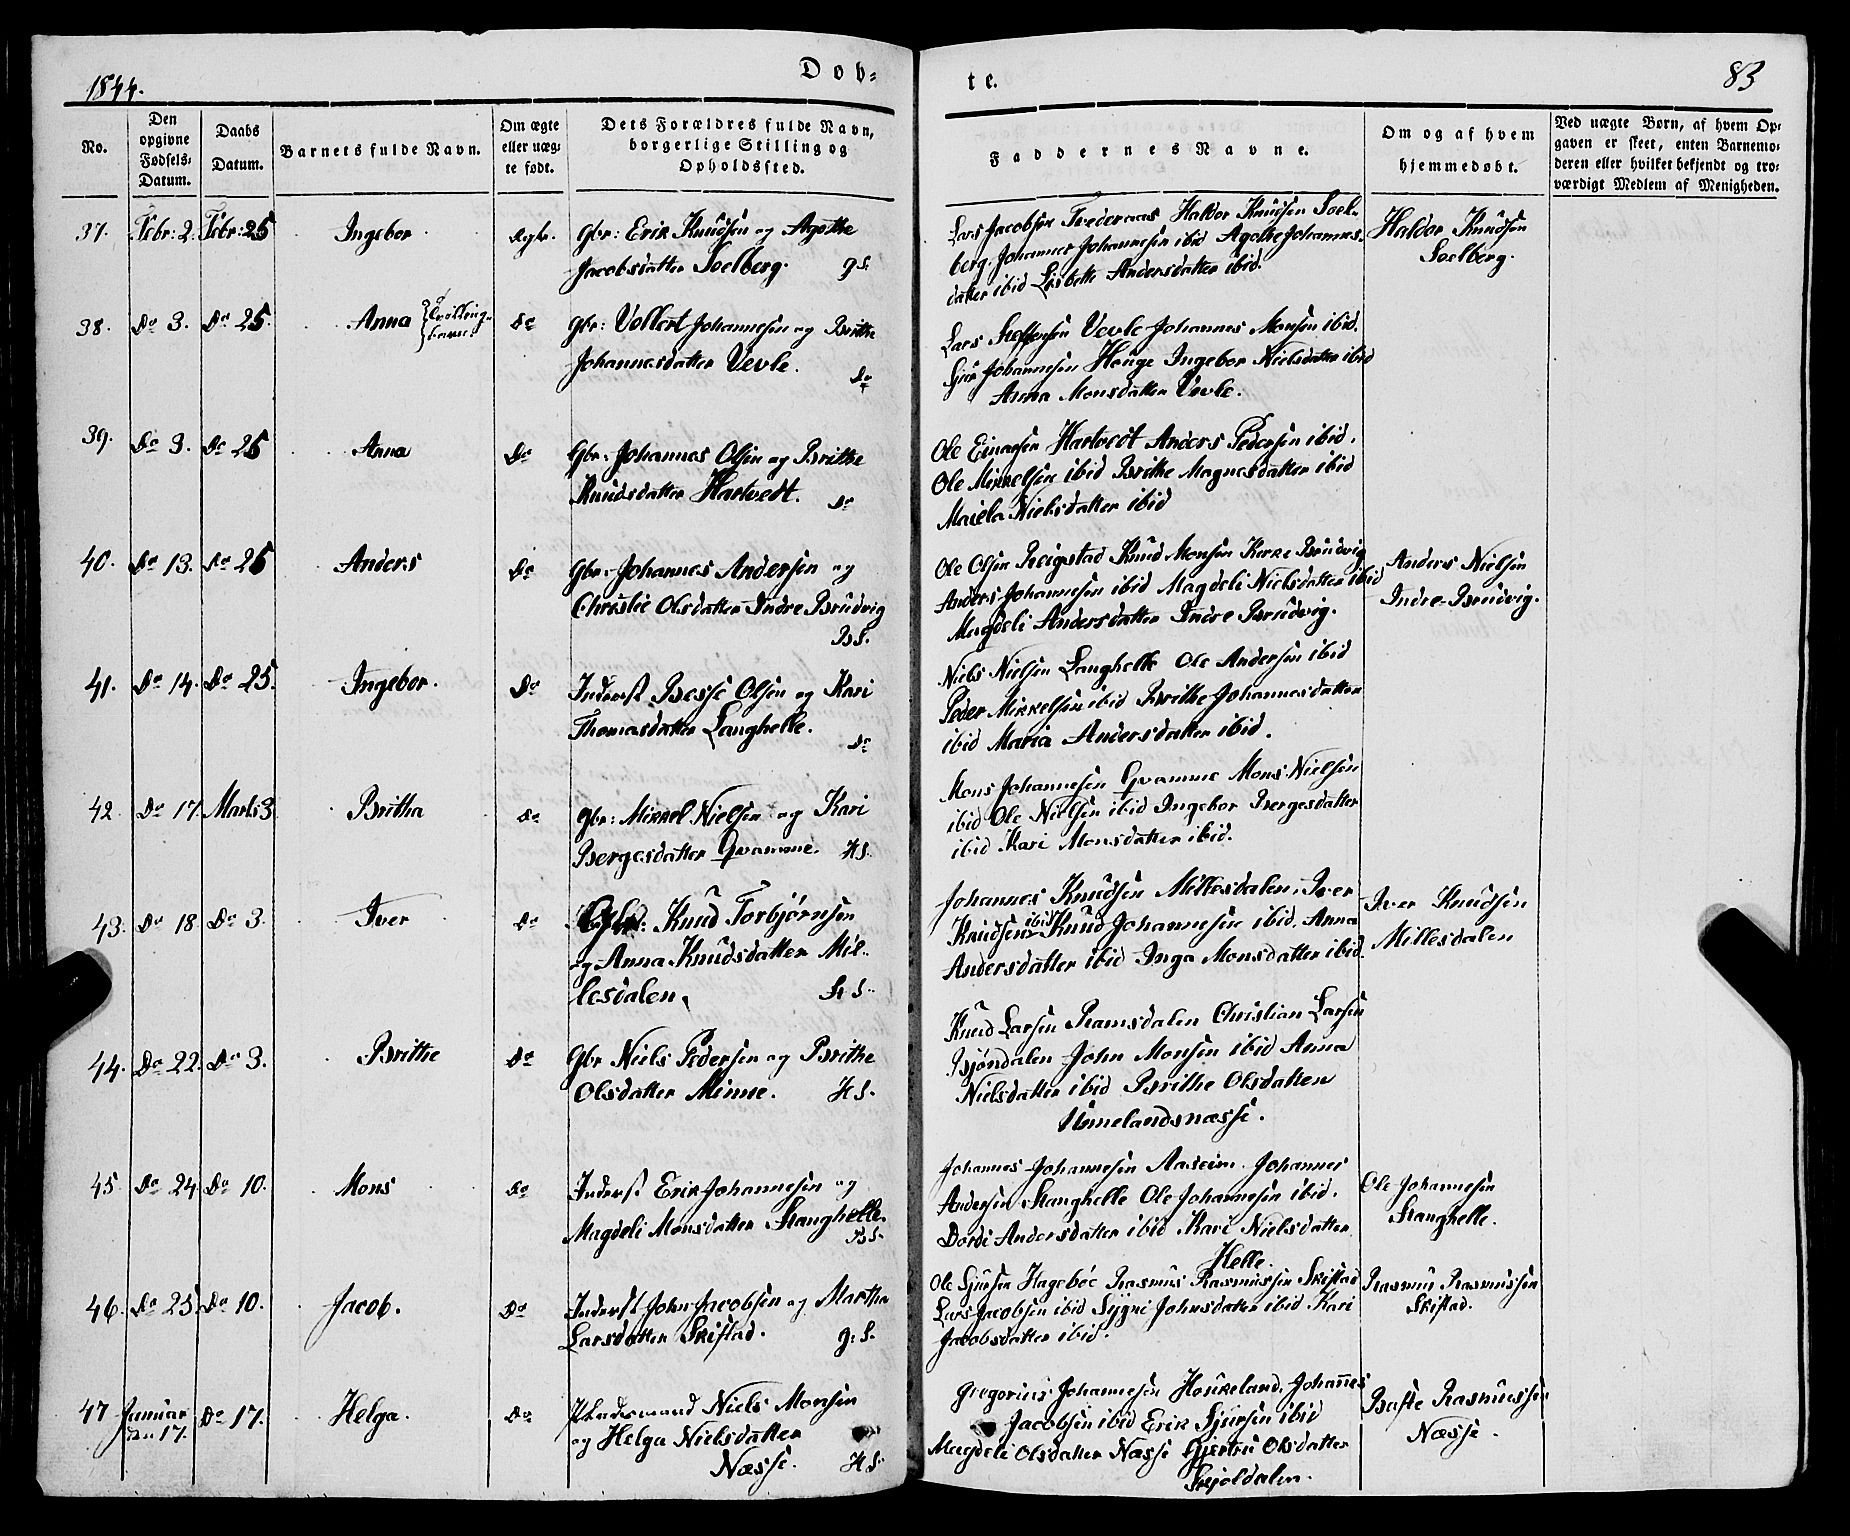 1844.
Døb-
te.
83
No.
Den opgivne Fødsels-Datum.
Daabs Datum.
Barnets fulde Navn.
Om ægte eller uægte født.
Dets Forældres fulde Navn, borgerlige Stilling og Opholdssted.
Faddernes Navne.
Om og af hvem hjemmedøbt.
Ved uægte Børn, af hvem Opgaven er skeet, enten Barnemoderen eller hvilket bekjendt og troværdigt Medlem af Menigheden.
37. Febr: 2. Febr: 25 Ingebor Ægte. Gbr: Erik Knudsen og Agathe
Jacobsdatter Soelberg. g S.
Lars Jacobsen Tvedernæs Haldor Knudsen Soel-
berg, Johannes Johannesen ibid Agathe Johannes-
datter ibid Lisbette Andersdatter ibid.
Haldor Knudsen
Soelberg.
38. Do 3. Do 25. Anna Do Gbr: Vollert Johannesen og Brithe
Johannesdatter Vevle. Do
Lars Steffensen Vevle Johannes Monsen ibid.
Sjur Johannesen Houge Ingebor Nielsdatter ibid
Anna Monsdatter Vevle.
39. Do 3. Do 25 Anna Do Gbr. Johannes Olsen og Brithe
Knudsdatter Hartvedt. Do
Ole Einarsen Hartvedt Anders Pedersen ibid.
Ole Mikkelsen ibid Brithe Magnesdatter ibid
Nielsdatter ibid
40. Do 13. Do 25 Anders Do Gbr. Johannes Andersen og
Christie Olsdatter Indre Brudvig
Bs S.
Ole Olsen Reigstad Knud Monsen Kirke Brudvig
Anders Johannesen ibid Magdeli Nielsdatter ibid
Magdeli Andersdatter Indre Brudvig.
Anders Nielsen
Indre-Brudvig.
41. Do 14. Do 25. Ingebor. Do Inderst Besse Olsen og Kari
Thomasdatter Langhelle. Do
Niels Nielsen Langhelle Ole Andersen ibid
Peder Mikkelsen ibid Brithe Johannesdatter
ibid Maria Andersdatter ibid.
42. Do 17. Marts 3. Britha Do Gbr: Mikkel Nielsen og Kari
Bergesdatter Qvamme. H S.
Mons Johannesen Qvamme Mons Nielsen
ibid Ole Nielsen ibid Ingebor Bergesdatter
ibid Kari Monsdatter ibid.
43. Do 18 Do 3. Iver Do Gbr: Knud Torbjørnsen
og Anna Knudsdatter Mil-
lesdalen. St S.
Johannes Knudsen Millesdalen. Iver
Knudsen ibid Knud Johannesen ibid. Anna
Andersdatter ibid Inga Monsdatter ibid.
Iver Knudsen
Millesdalen
44. Do 22. Do 3. Brithe Do Gbr Niels Pedersen og Brithe
Olsdatter Minne. H S.
Knud Larsen Ramsdalen Christian Larsen
Bjøndalen John Monsen ibid Anna
Nielsdatter ibid Brithe Olsdatter
Unnelandsnæsse.
45. Do 24 Do 10. Mons Do Inderst Erik Johannesen og
Magdeli Monsdatter Stanghelle.
Bs S.
Johannes Johannesen Aasheim. Johannes
Andersen Stanghelle Ole Johannesen ibid.
Dordi Andersdatter ibid Kari Nielsdatter
Helle.
Ole Johannesen
Stanghelle.
46. Do 25. Do 10. Jacob. Do Inderst John Jacobsen og Martha
Larsdatter Skistad. g: S.
Ole Sjursen Hagebøe Rasmus Rasmussen Skistad
Lars Jacobsen ibid Sygni Johnsdatter ibid Kari
Jacobsdatter ibid.
Rasmus Rasmussen
Skistad.
47 Januar 17. Do 17. Helga. Do Niels Monsen
og Helga Nielsdatter
Næsse. H S.
Gregorius Johannesen Houkeland, Johannes
Jacobsen ibid Erik Sjursen ibid
Magdeli Olsdatter Næsse Gjertru Olsdatter
Skjoldalen.
Baste Rasmussen
Næsse.